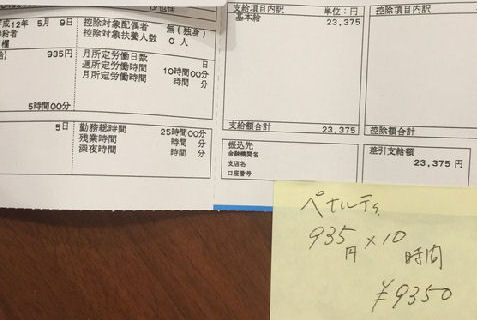 平成12年 5月 9日
控除対象配偶者 無(独身)
控除対象扶養人数 0 人
935円
月所定労働日数 日
週所定労働時間 10時間00分
月所定労働時間 時間 分
5時間00分
5日
勤務総時間 25時間00分
残業時間 時間 分
深夜時間 時間 分
支給項目内訳 単位:円
基本給 23,375
支給額合計 23,375
控除項目内訳
控除額合計
振込先
金融機関名
支店名
口座番号
差引支給額
23,375 円
ペナルティ
935円×10時間
¥9350